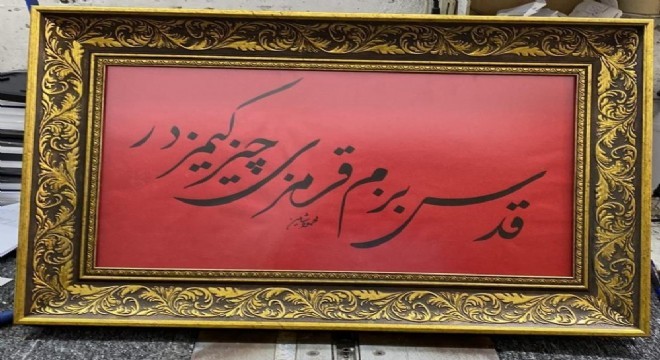 قدس بزم قرمزی چیزکیمزدر